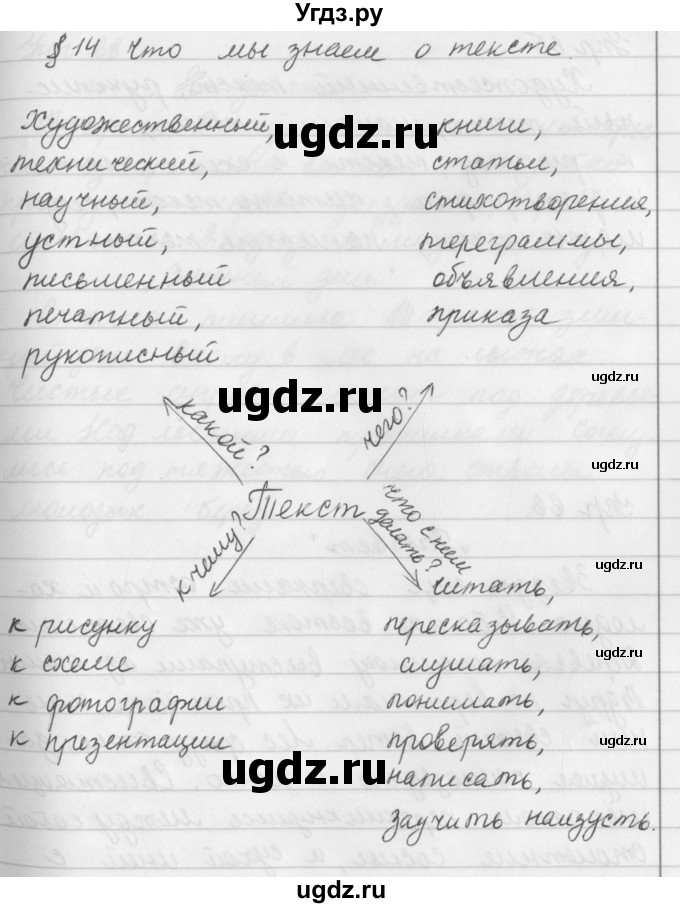 Угдз.ру
§ 14 Что мы знаем о тексте.
Художественный, книги,
технический, статьи,
научный, стихотворения,
устный, териграммы,
письменный объявления,
печатный, приказа
рукописный.
какой? чего?
Текст
к чему? что с ним делать?
читать,
к рисунку пересказывать,
к схеме слушать,
к фотографии понимать,
к презентации проверять,
написать,
заучить наизусть.
ugdz.ru
ugdz.ru
ugdz.ru
ugdz.ru
ugdz.ru
ugdz.ru
ugdz.ru
ugdz.ru
ugdz.ru
ugdz.ru
ugdz.ru